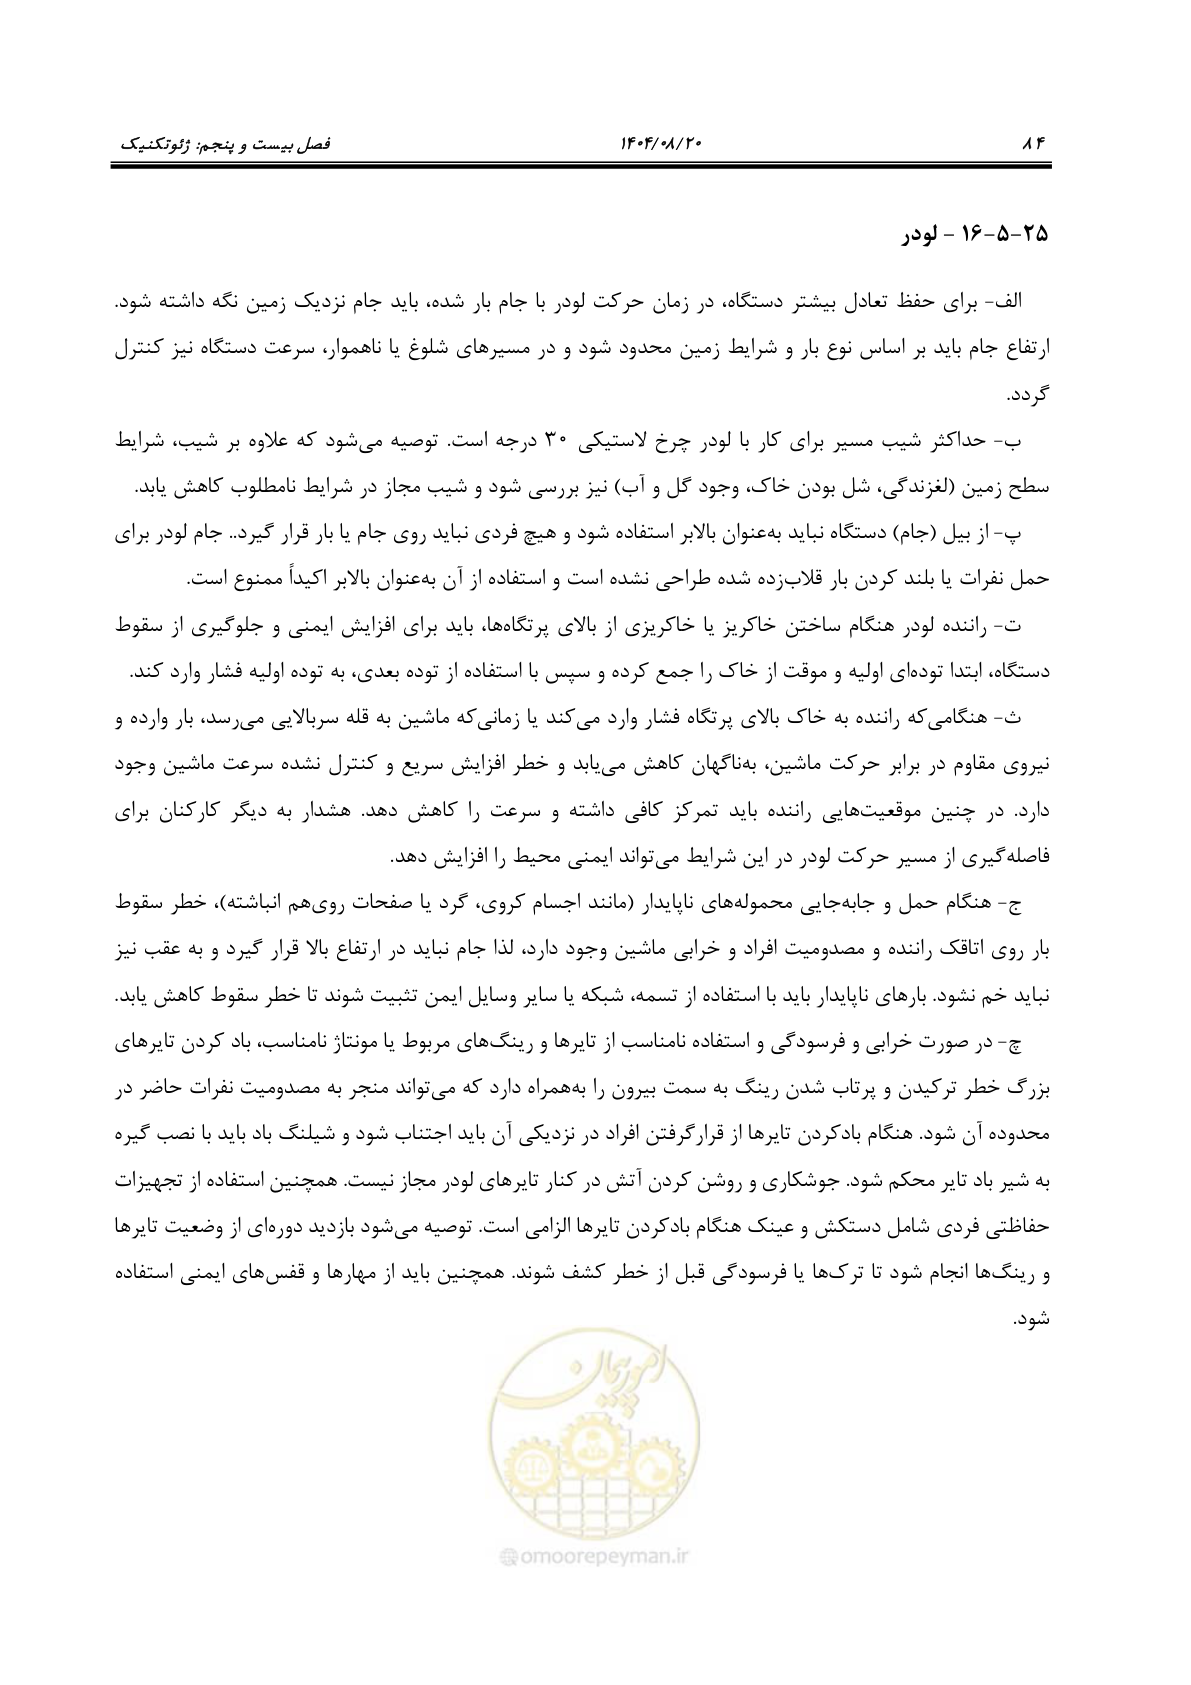 ۸۴
۱۴۰۴/۰۸/۲۰
فصل بیست و پنجم: ژئوتکنیک
۲۵-۵-۱۶ – لودر
الف- برای حفظ تعادل بیشتر دستگاه، در زمان حرکت لودر با جام بار شده، باید جام نزدیک زمین نگه داشته شود.
ارتفاع جام باید بر اساس نوع بار و شرایط زمین محدود شود و در مسیرهای شلوغ یا ناهموار، سرعت دستگاه نیز کنترل
گردد.
ب- حداکثر شیب مسیر برای کار با لودر چرخ لاستیکی ۳۰ درجه است. توصیه می‌شود که علاوه بر شیب، شرایط
سطح زمین (لغزندگی، شل بودن خاک، وجود گل و آب) نیز بررسی شود و شیب مجاز در شرایط نامطلوب کاهش یابد.
پ- از بیل (جام) دستگاه نباید به‌عنوان بالابر استفاده شود و هیچ فردی نباید روی جام یا بار قرار گیرد.. جام لودر برای
حمل نفرات یا بلند کردن بار قلاب‌زده شده طراحی نشده است و استفاده از آن به‌عنوان بالابر اکیداً ممنوع است.
ت- راننده لودر هنگام ساختن خاکریز یا خاکریزی از بالای پرتگاه‌ها، باید برای افزایش ایمنی و جلوگیری از سقوط
دستگاه، ابتدا توده‌ای اولیه و موقت از خاک را جمع کرده و سپس با استفاده از توده بعدی، به توده اولیه فشار وارد کند.
ث- هنگامی‌که راننده به خاک بالای پرتگاه فشار وارد می‌کند یا زمانی‌که ماشین به قله سربالایی می‌رسد، بار وارده و
نیروی مقاوم در برابر حرکت ماشین، به‌ناگهان کاهش می‌یابد و خطر افزایش سریع و کنترل نشده سرعت ماشین وجود
دارد. در چنین موقعیت‌هایی راننده باید تمرکز کافی داشته و سرعت را کاهش دهد. هشدار به دیگر کارکنان برای
فاصله‌گیری از مسیر حرکت لودر در این شرایط می‌تواند ایمنی محیط را افزایش دهد.
ج- هنگام حمل و جابه‌جایی محموله‌های ناپایدار (مانند اجسام کروی، گرد یا صفحات روی‌هم انباشته)، خطر سقوط
بار روی اتاقک راننده و مصدومیت افراد و خرابی ماشین وجود دارد، لذا جام نباید در ارتفاع بالا قرار گیرد و به عقب نیز
نباید خم نشود. بارهای ناپایدار باید با استفاده از تسمه، شبکه یا سایر وسایل ایمن تثبیت شوند تا خطر سقوط کاهش یابد.
چ- در صورت خرابی و فرسودگی و استفاده نامناسب از تایرها و رینگ‌های مربوط یا مونتاژ نامناسب، باد کردن تایرهای
بزرگ خطر ترکیدن و پرتاب شدن رینگ به سمت بیرون را به‌همراه دارد که می‌تواند منجر به مصدومیت نفرات حاضر در
محدوده آن شود. هنگام بادکردن تایرها از قرارگرفتن افراد در نزدیکی آن باید اجتناب شود و شیلنگ باد باید با نصب گیره
به شیر باد تایر محکم شود. جوشکاری و روشن کردن آتش در کنار تایرهای لودر مجاز نیست. همچنین استفاده از تجهیزات
حفاظتی فردی شامل دستکش و عینک هنگام بادکردن تایرها الزامی است. توصیه می‌شود بازدید دوره‌ای از وضعیت تایرها
و رینگ‌ها انجام شود تا ترک‌ها یا فرسودگی قبل از خطر کشف شوند. همچنین باید از مهارها و قفس‌های ایمنی استفاده
شود.
امور پیمان
@omoorepeyman.ir